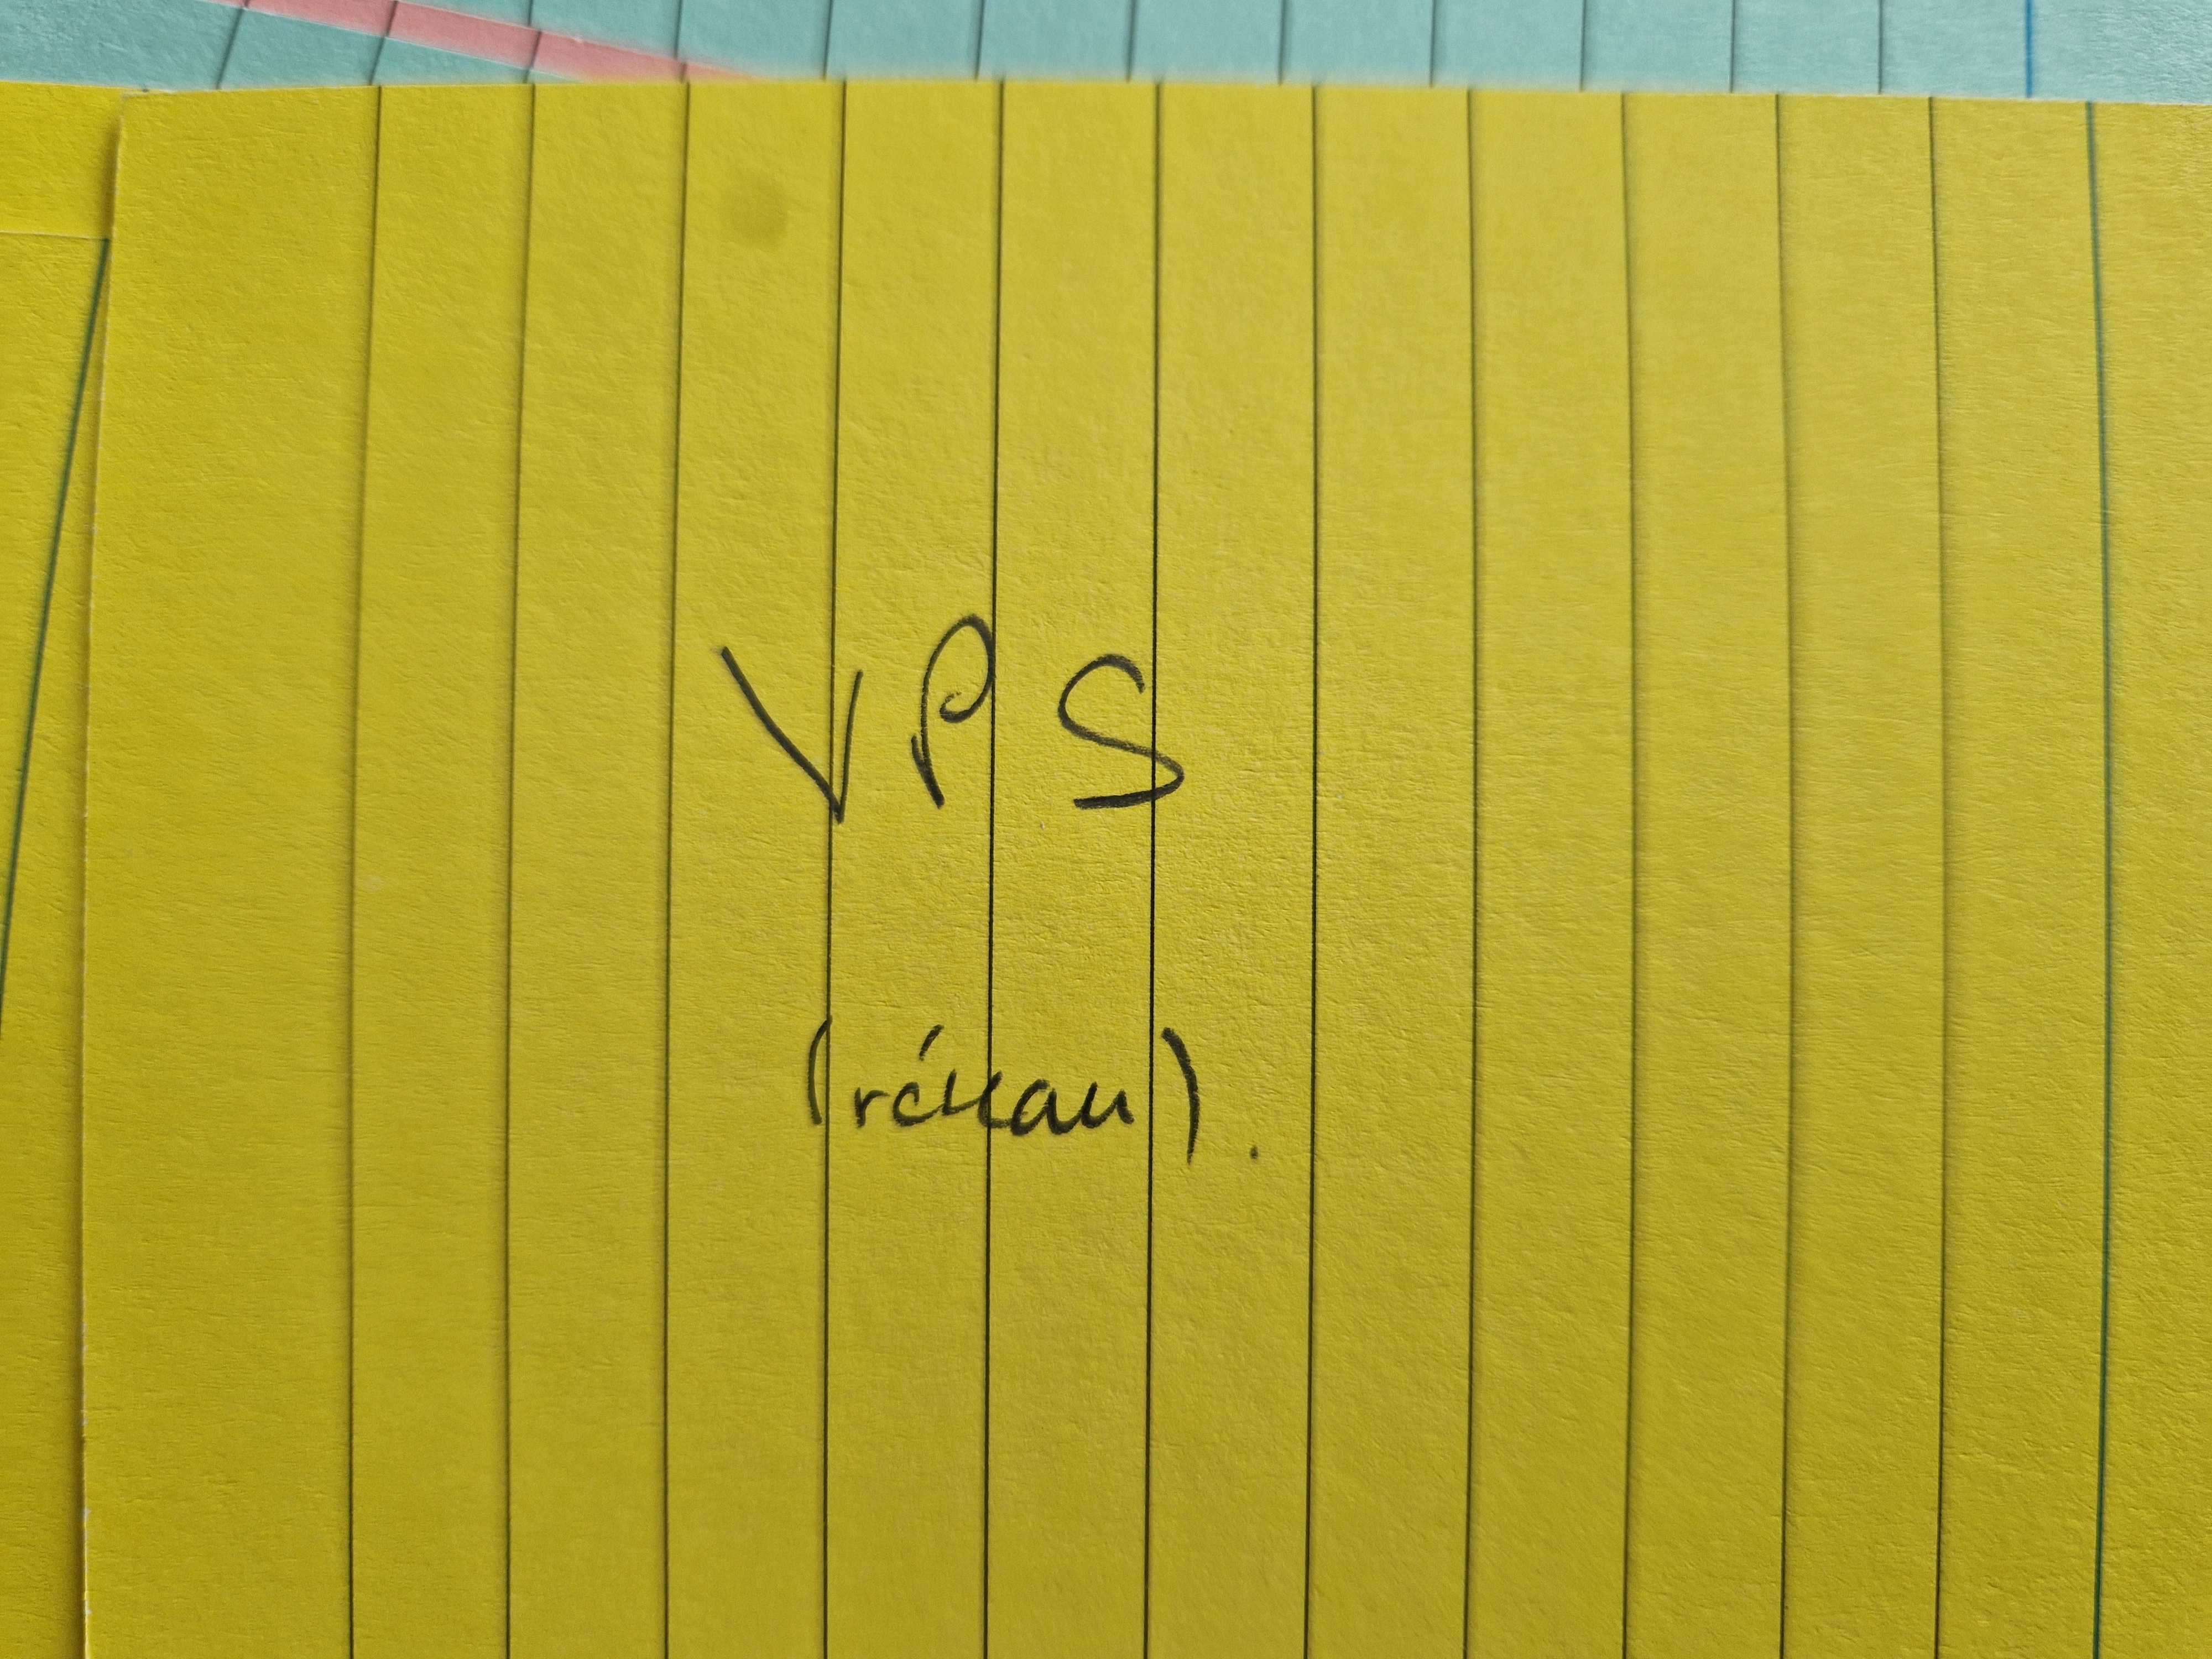 VPS
(réseau).